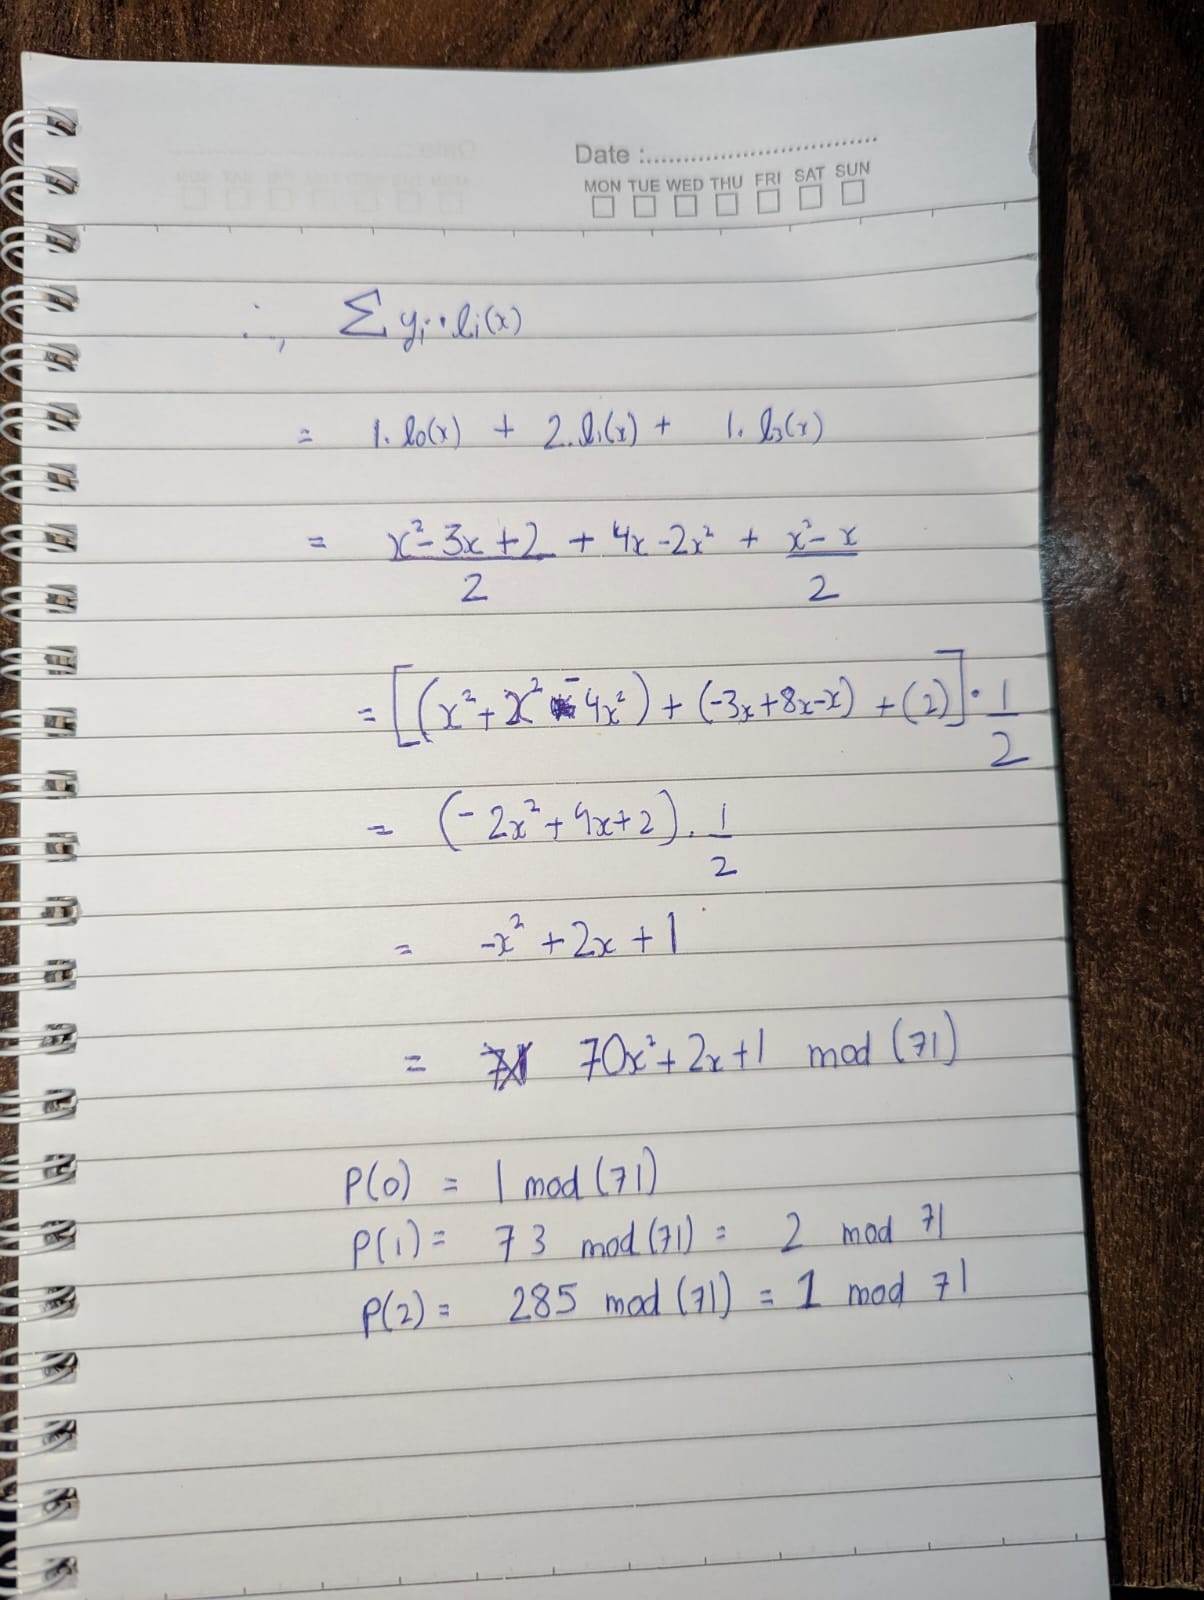 Date :
MON TUE WED THU FRI SAT SUN
∴, Σ yᵢ·lᵢ(x)
= 1. l₀(x) + 2. l₁(x) + 1. l₃(x)
= (x² - 3x + 2)/2 + 4x - 2x² + (x² - x)/2
= [(x² + x² - 4x²) + (-3x + 8x - x) + (2)] · 1/2
= (-2x² + 4x + 2) . 1/2
= -x² + 2x + 1
= 70x² + 2x + 1 mod (71)
P(0) = 1 mod (71)
P(1) = 73 mod (71) = 2 mod 71
P(2) = 285 mod (71) = 1 mod 71